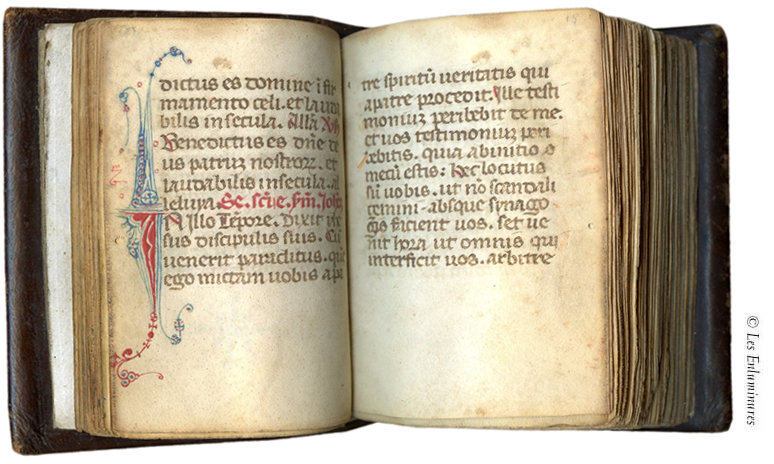 dictus es domine i fir
mamento celi. et lauda
bilis in secula. Alla
Benedictus es dne de
us patrum nostrorz. et
laudabilis in secula. al
leluya. Sc. scde. fm. Joh
N illo Tempore. Dixit ihe
sus discipulis suis. Cu
venerit paraclitus. que
ego mictam vobis a pa
tre spiritu veritatis qui
a patre procedit. Ille testi
monium peribebit de me.
et vos testimonium peri
bebitis. quia ab initio
mecu estis: Hec locutus
su vobis. ut no scandali
cemini. absque synago
gis facient vos. set ve
nit hora ut omnis qui
interficit vos. arbitre
© Les Enluminures